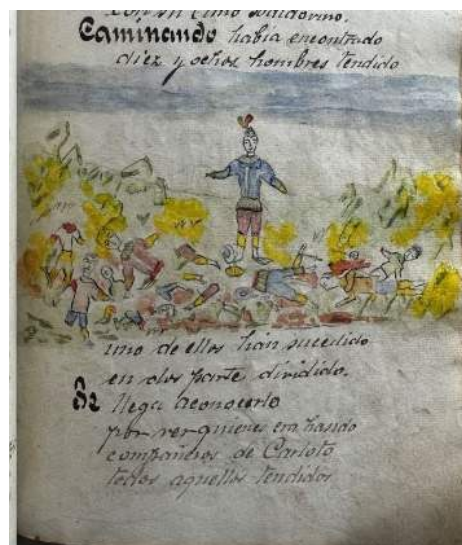 con su primo Baldovino.
Caminando habia encontrado
diez y ochos hombres tendido
uno de ellos han sucedido
en dos parte dividido.
Se llega aconocerlo
por ver quienes em hando
compañeros de Carloto
todos aquellos tendidos